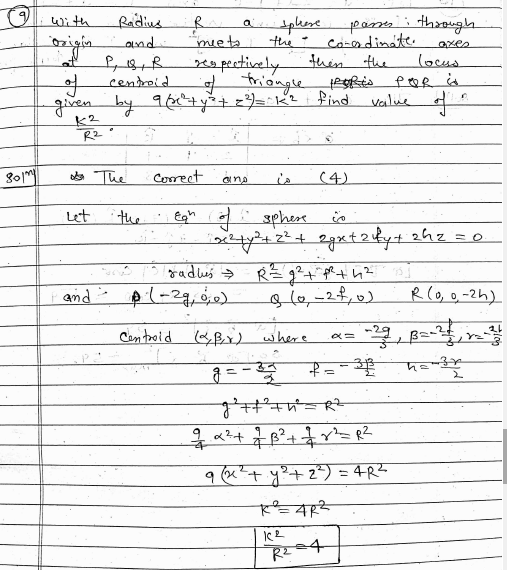 9 with Radius R a sphere passes through
origin and meets the co-ordinate axes
at P, Q, R respectively then the locus
of centroid of triangle PQR is
given by 9(x²+y²+z²)=k² find value of
k²/R².
Solⁿ The correct ans is (4)
Let the Eqⁿ of sphere is
x²+y²+z²+2gx+2fy+2hz=0
radius ⇒ R²=g²+f²+h²
and P(-2g,0,0) Q(0,-2f,0) R(0,0,-2h)
Centroid (α,β,γ) where α=-2g/3, β=-2f/3, γ=-2h/3
g=-3α/2 f=-3β/2 h=-3γ/2
g²+f²+h²=R²
9/4 α²+9/4 β²+9/4 γ²=R²
9(x²+y²+z²)=4R²
K²=4R²
K²/R²=4